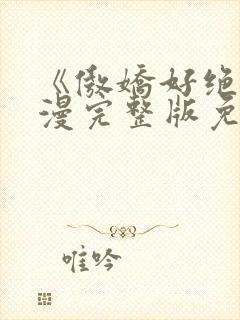 《傲娇好绝
漫完整版免
唯吟